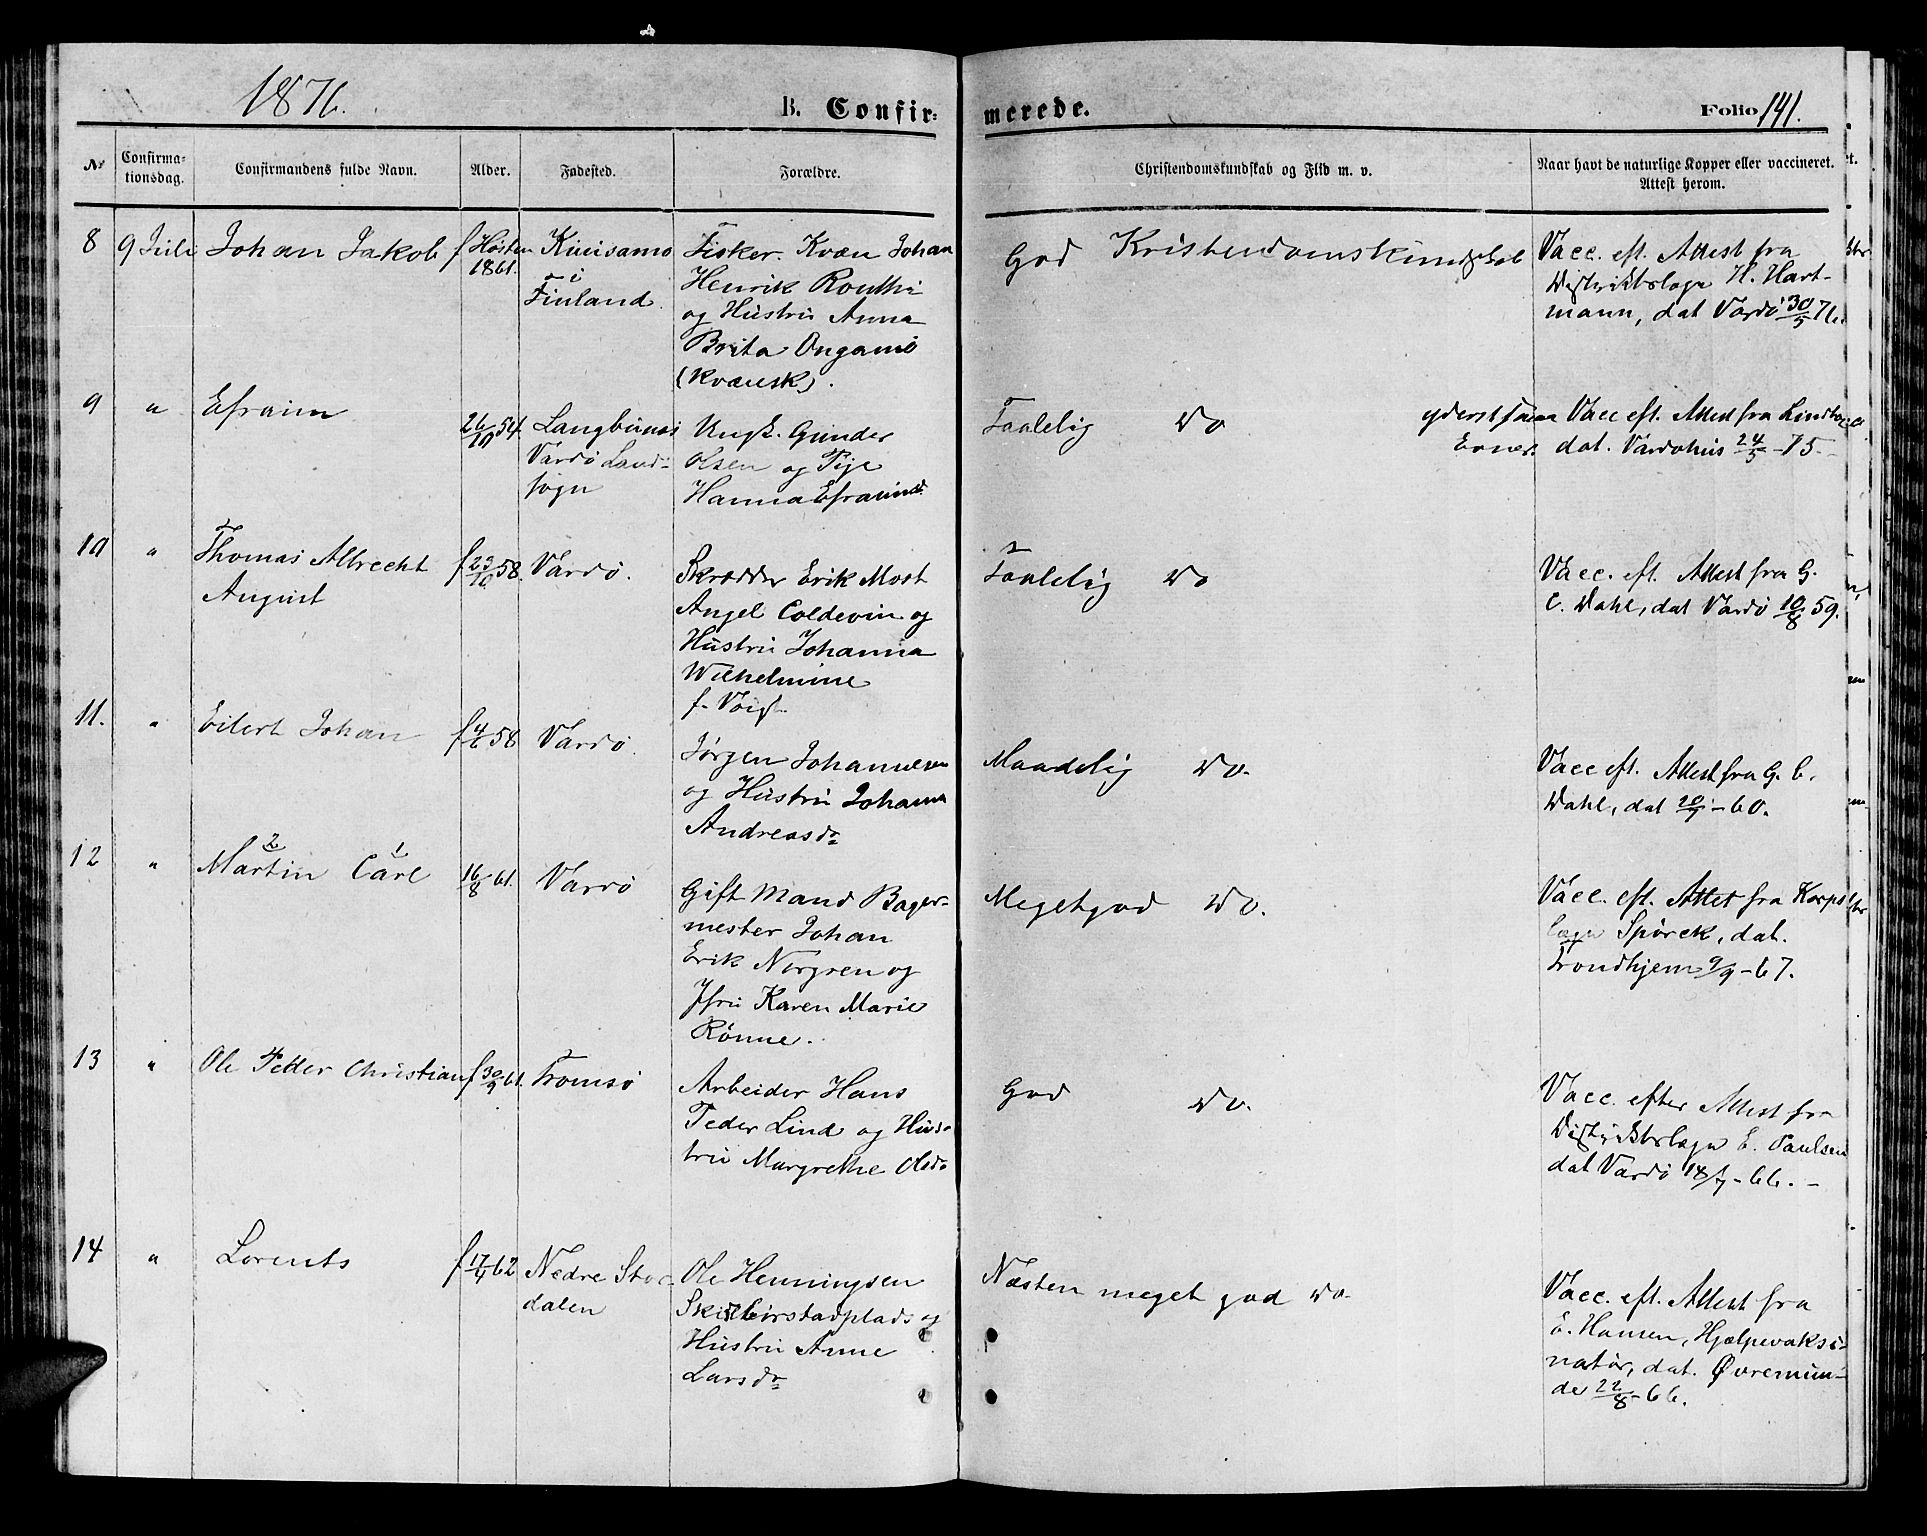 1876.
B. Confir-
merede.
Folio 141.
Nr
Confirma-
tionsdag.
Confirmandens fulde Navn.
Alder.
Fødested.
Forældre.
Christendomskundskab og Flid m. v.
Naar havt de naturlige Kopper eller vaccineret.
Attest herom.
8
9 Juli
Johan Jakob
f Høsten
1861.
Kuusamo
i
Finland
Fisker. Kvæn Johan
Henrik Routhi
og Hustru Anna
Brita Ongamo
(kvænsk).
God Kristendomskundskab
Vacc. eft. Attest fra
Distriktslæge H. Hart-
mann, dat Vardø 30/5 76.
9
"
Efraim
26/10 54.
Langbunes
Vardø Land-
sogn
Ungk. Gunder
Olsen og Pige
Hanna Efraimsd.
Taalelig Do
yderst
Evner.
Vacc eft. Attest fra
dat. Vardøhus 24/5 - 75 -
10
"
Thomas Albrecht
August
f 23/10 58.
Vardø.
Skrædder Erik Most
Angel Coldevin og
Hustru Johanna
Wilhelmine
f. Voigt.
Taalelig Do
Vacc. eft. Attest fra G.
C. Dahl, dat Vardø 10/8 59.
11.
"
Eilert Johan
f 4/6 58
Vardø.
Jørgen Johannesen
og Hustru Johanna
Andreasdr
Maadelig Do.
Vacc eft. Attest fra G. C.
Dahl, dat 20/7 - 60.
12
"
2 1
Martin Carl
16/8 61.
Vardø
Gift Mand Bager-
mester Johan
Erik Norgren og
Jfru Karen Marie
Rønne.
Megetgod Do.
Vacc. eft. Attet fra Korps
læge Spørck, dat.
Trondhjem 9/9 - 67.
13
"
Ole Peder Christian
f 30/9 61.
Tromsø
Arbeider Hans
Peder Lind og Hus-
tru Margrethe Olsdr
God Do.
Vacc. efter Attest fra
Distriktslæge E. Paulsen
dat Vardø 18/7 - 66. -
14
"
Lorents
f 17/4 62
Nedre
dalen
Ole Henningsen
og
Hustru Anne
Larsdr
Næsten meget god Do.
Vacc. eft. Attest fra
Hansen, Hjælpevaksi-
natør, dat. Øvremun-
de 22/8 - 66.